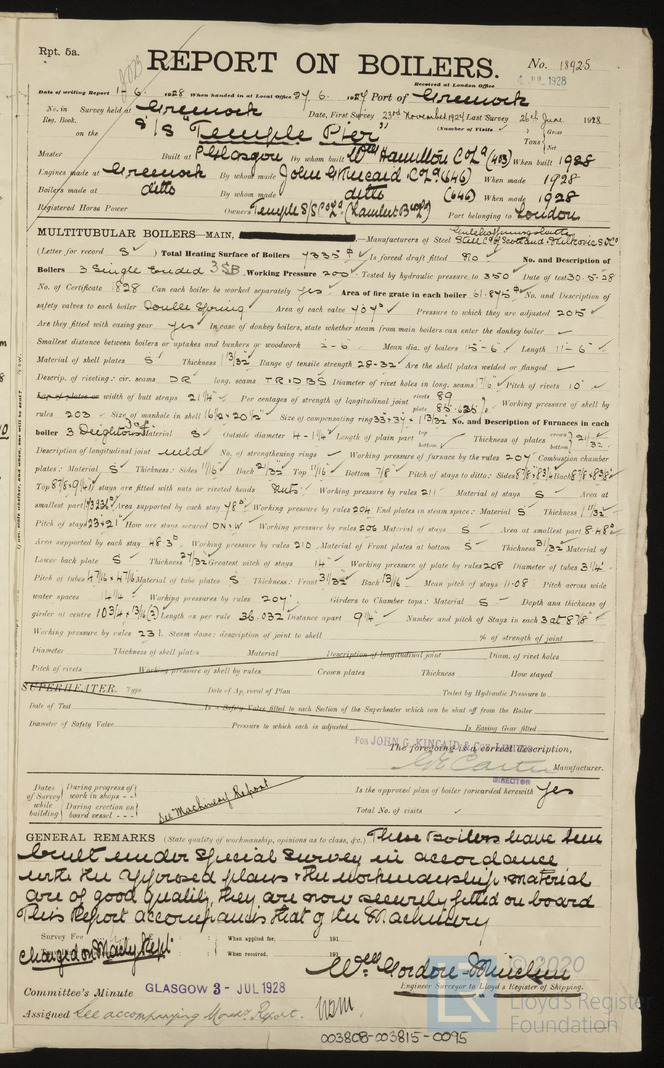 Rpt. 5a.
REPORT ON BOILERS.
No. 18925
JUL 1928
Received at London Office
Date of writing Report 1-6. 1928 When handed in at Local Office 27. 6. 1928 Port of Greenock
No. in Survey held at Greenock Date, First Survey 23rd November 1927 Last Survey 26th June 1928
Reg. Book. (Number of Visits
on the S/S "Temple Pier" Tons Gross Net
Master Built at P. Glasgow By whom built Wm Hamilton & Co Ld (403) When built 1928
Engines made at Greenock By whom made John G. Kincaid & Co Ld (646) When made 1928
Boilers made at ditto By whom made ditto (646) When made 1928
Registered Horse Power Owners Temple S/S Co Ld (Lambert Bros Ld) Port belonging to London
MULTITUBULAR BOILERS—MAIN, Manufacturers of Steel Steel Co of Scotland
(Letter for record S) Total Heating Surface of Boilers 7335 Is forced draft fitted No No. and Description of
Boilers 3 Single Ended 3SB Working Pressure 200 Tested by hydraulic pressure to 350 Date of test 30-5-28
No. of Certificate 1828 Can each boiler be worked separately yes Area of fire grate in each boiler 61.875 No. and Description of
safety valves to each boiler Double Spring Area of each valve 7.07 Pressure to which they are adjusted 205
Are they fitted with easing gear yes In case of donkey boilers, state whether steam from main boilers can enter the donkey boiler
Smallest distance between boilers or uptakes and bunkers or woodwork 2-6 Mean dia. of boilers 15-6 Length 11-6
Material of shell plates S Thickness 1 13/32 Range of tensile strength 28-32 Are the shell plates welded or flanged
Descrip. of riveting: cir. seams DR long. seams TR.DBS Diameter of rivet holes in long. seams 1 7/16 Pitch of rivets 10
Lap of plates or width of butt straps 21 1/4 Per centages of strength of longitudinal joint rivets 89 plate 85.625 Working pressure of shell by
rules 203 Size of manhole in shell 16 1/2 x 20 1/2 Size of compensating ring No. and Description of Furnaces in each
boiler 3 Deightons Material S Outside diameter 4-1 1/4 Length of plain part top bottom Thickness of plates crown bottom 21/32
Description of longitudinal joint weld No. of strengthening rings Working pressure of furnace by the rules 207 Combustion chamber
plates: Material S Thickness: Sides 11/16 Back 21/32 Top 11/16 Bottom 7/8 Pitch of stays to ditto: Sides Back
Top If stays are fitted with nuts or riveted heads Nuts Working pressure by rules 211 Material of stays S Area at
smallest part Area supported by each stay 78 Working pressure by rules 204 End plates in steam space: Material S Thickness 1 11/32
Pitch of stays 23 x 21 How are stays secured DN&W Working pressure by rules 206 Material of stays S Area at smallest part 8.48
Area supported by each stay 483 Working pressure by rules 210 Material of Front plates at bottom S Thickness 31/32 Material of
Lower back plate S Thickness 27/32 Greatest pitch of stays 14 Working pressure of plate by rules 208 Diameter of tubes 3 1/4
Pitch of tubes 4 7/16 x 4 7/16 Material of tube plates S Thickness: Front 31/32 Back 13/16 Mean pitch of stays 11.08 Pitch across wide
water spaces 14 1/4 Working pressures by rules 207 Girders to Chamber tops: Material S Depth and thickness of
girder at centre 10 3/4 x 13/16 (2) Length as per rule 36.032 Distance apart 9 1/4 Number and pitch of Stays in each 3 at 8 7/8
Working pressure by rules 231 Steam dome: description of joint to shell % of strength of joint
Diameter Thickness of shell plates Material Description of longitudinal joint Diam. of rivet holes
Pitch of rivets Working pressure of shell by rules Crown plates Thickness How stayed
SUPERHEATER. Type Date of Approval of Plan Tested by Hydraulic Pressure to
Date of Test Is a Safety Valve fitted to each Section of the Superheater which can be shut off from the Boiler
Diameter of Safety Valve Pressure to which each is adjusted Is Easing Gear fitted
FOR JOHN G. KINCAID & CO. LIMITED
The foregoing is a correct description,
G E Carter Manufacturer.
DIRECTOR
Dates of Survey while building
During progress of work in shops - -
During erection on board vessel - - -
See Machinery Report
Is the approved plan of boiler forwarded herewith Yes
Total No. of visits
GENERAL REMARKS (State quality of workmanship, opinions as to class, &c.) These Boilers have been
built under Special Survey in accordance
with the approved plans & the workmanship & material
are of good quality, they are now securely fitted on board
This Report accompanies that of the Machinery
Survey Fee When applied for, 191
charged on Machy Rept When received, 191
Wm Gordon-Muirhen
Engineer Surveyor to Lloyd's Register of Shipping.
Committee's Minute GLASGOW 3 - JUL 1928
Assigned See accompanying Machy Report.
© 2020
Lloyd's Register
Foundation
003808-003815-0095